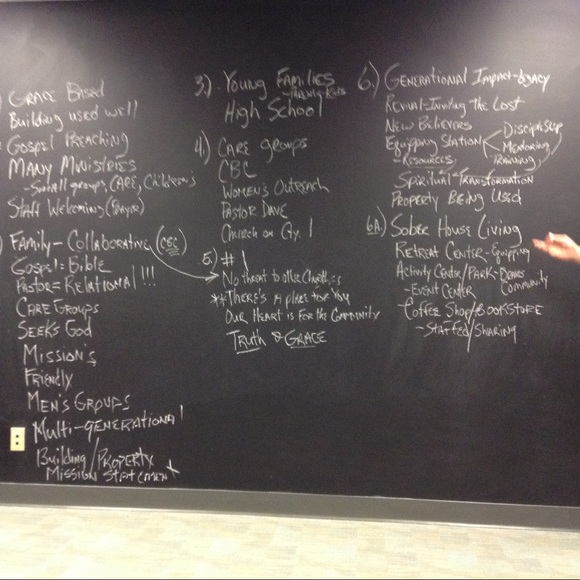 Grace Based
Building used well
Gospel Preaching
Many Ministries
- Small groups, (CARE, Children's
Staff Welcoming (Pavor)
Family - Collaborative (CBC)
Gospel = Bible
Pastor = Relational !!!
Care Groups
Seeks God
Mission's
Friendly
Men's Groups
Multi-generational
Building/Property
Mission Statement
3.) Young Families
High School
4.) Care groups
CBC
Women's Outreach
Pastor Dave
Church on Cty. I
5.) #1
No threat to other Churches
** There's a place for you
Our Heart is For the Community
Truth & Grace
6.) Generational Impact-Legacy
Revival-Inviting the Lost
New Believers
Equipping Station < Discipleship
- Resources Mentoring
Training
Spiritual Transformation
Property Being Used
6A.) Sober House Living
Retreat Center - Equipping
Activity Center/Park -
- Event Center Community
Coffee Shop/Bookstore
- Staffed/Sharing